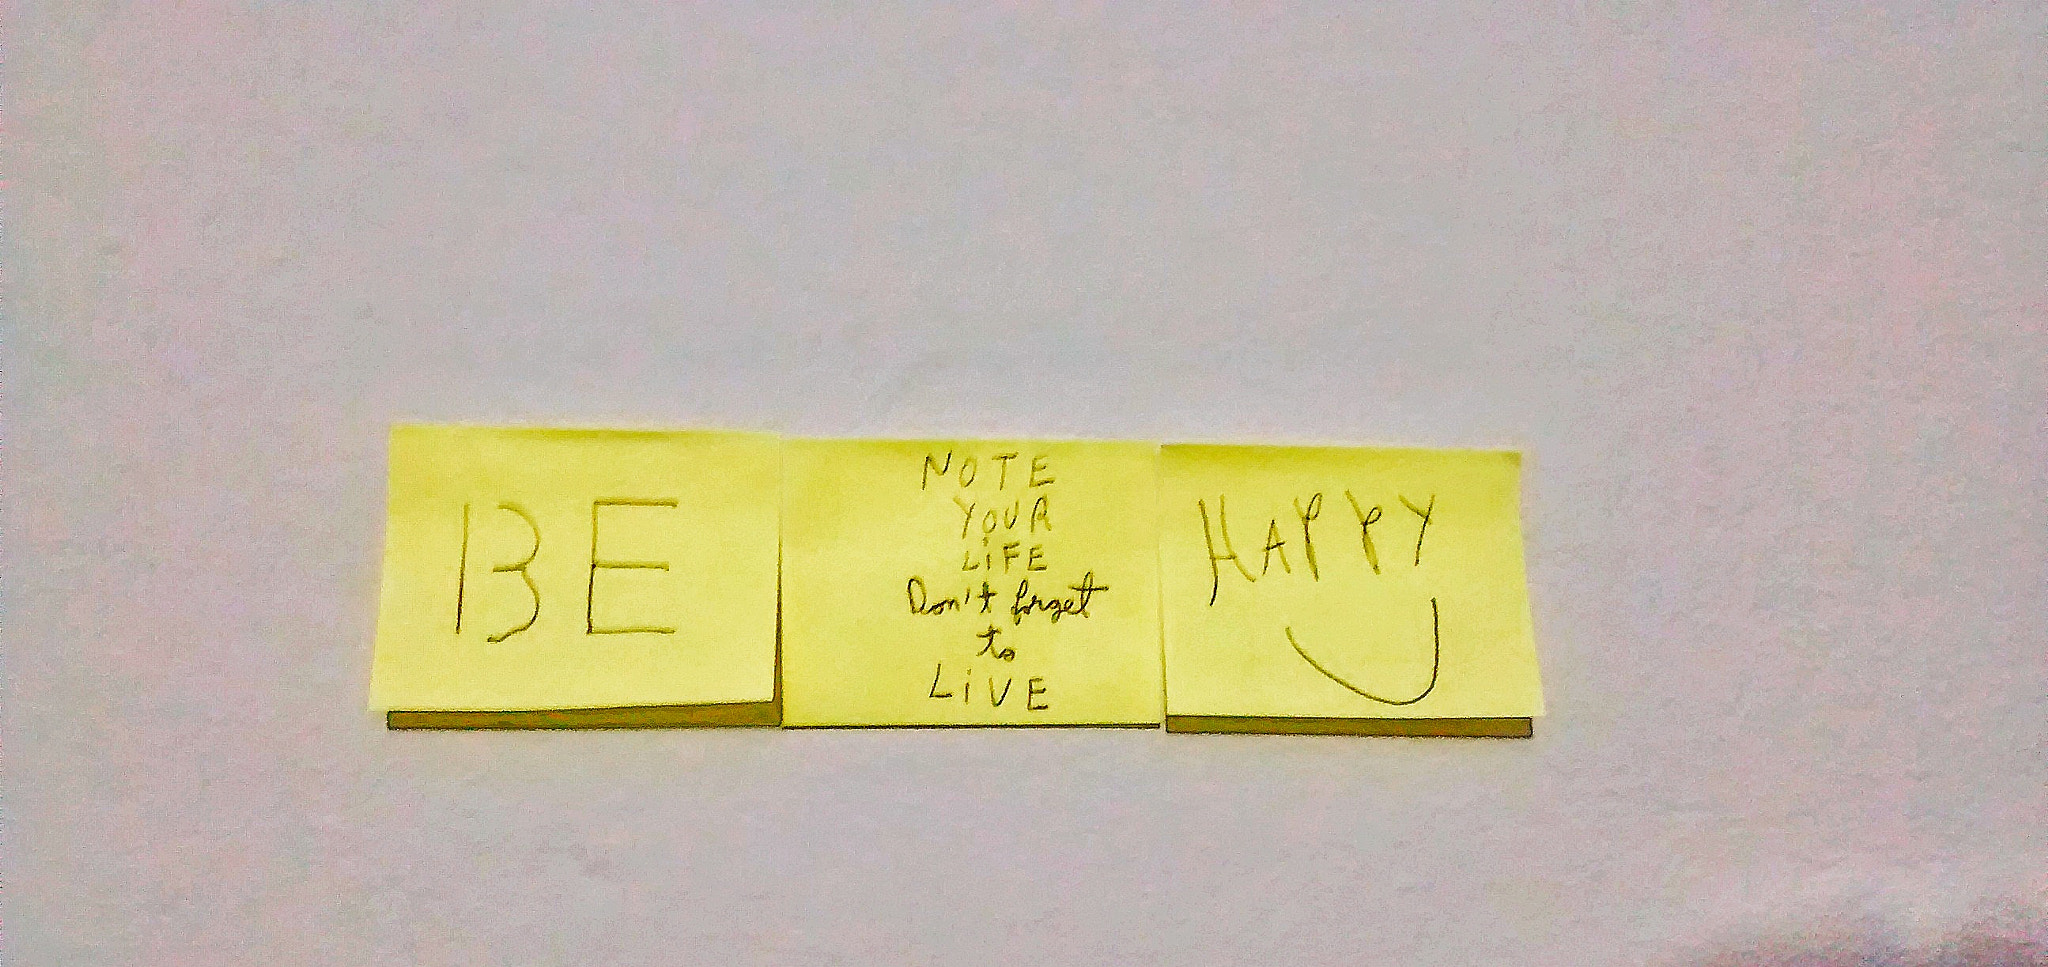 BE
NOTE
YOUR
LiFE
Don't forget
to
LiVE
HAPPY